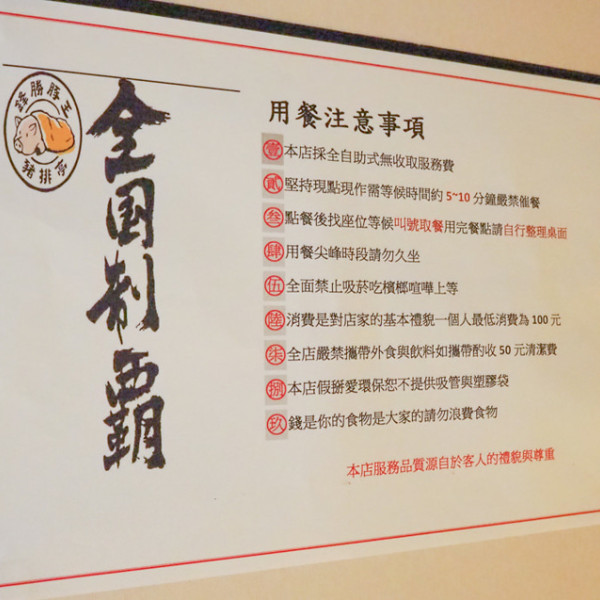 鋒勝豚王
豬排飯
全国制覇
用餐注意事項
壹 本店採全自助式無收取服務費
貳 堅持現點現作需等候時間約 5~10 分鐘嚴禁催餐
叁 點餐後找座位等候叫號取餐用完餐點請自行整理桌面
肆 用餐尖峰時段請勿久坐
伍 全面禁止吸菸吃檳榔喧嘩上等
陸 消費是對店家的基本禮貌一個人最低消費為 100 元
柒 全店嚴禁攜帶外食與飲料如攜帶酌收 50 元清潔費
捌 本店假掰愛環保恕不提供吸管與塑膠袋
玖 錢是你的食物是大家的請勿浪費食物
本店服務品質源自於客人的禮貌與尊重